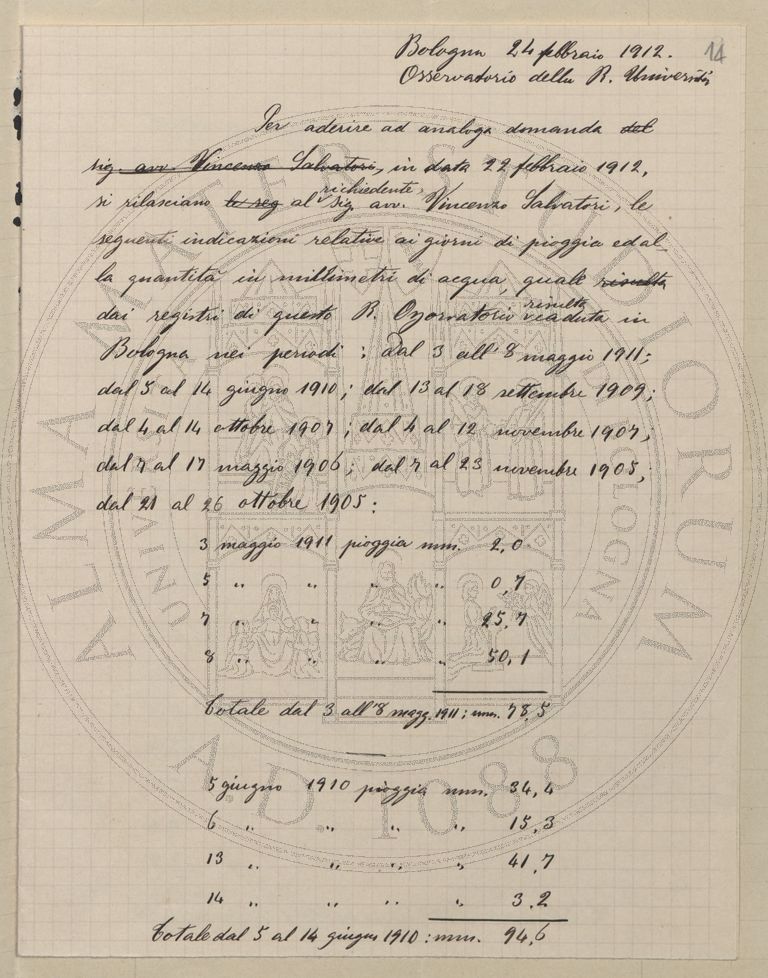 Bologna 24 febbraio 1912. 14
Osservatorio della R. Università
Per aderire ad analoga domanda del
sig. avv. Vincenzo Salvatori, in data 22 febbraio 1912,
richiedente,
si rilasciano le seg al Sig. avv. Vincenzo Salvatori, le
seguenti indicazioni relative ai giorni di pioggia ed al-
la quantità in millimetri di acqua, quale risulta
risulta
dai registri di questo R. Osservatorio caduta in
Bologna nei periodi: dal 3 all'8 maggio 1911;
dal 5 al 14 giugno 1910; dal 13 al 18 settembre 1909;
dal 4 al 14 ottobre 1907; dal 4 al 12 novembre 1907;
dal 7 al 17 maggio 1906; dal 7 al 23 novembre 1905;
dal 21 al 26 ottobre 1905:
3 maggio 1911 pioggia mm. 2,0
5 " " " " 0,7
7 " " " " 25,7
8 " " " " 50,1
Totale dal 3 all'8 magg. 1911: mm. 78,5
5 giugno 1910 pioggia mm. 34,4
6 " " " " 15,3
13 " " " " 41,7
14 " " " " 3,2
Totale dal 5 al 14 giugno 1910: mm. 94,6
ALMA MATER STUDIORUM
BOLOGNA
A.D. 1088